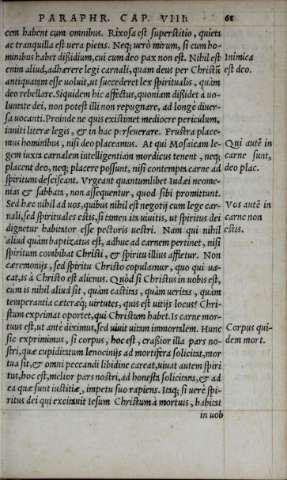 PARAPHR. CAP. VIII. 61
cem habent cum omnibus. Rixosa est superstitio, quieta
ac tranquilla est uera pietas. Neq; uerò mirum, si cum ho-
minibus habet dissidium, cui cum deo pax non est. Nihil est Inimica
enim aliud, adhærere legi carnali, quàm deus per Christū est deo.
antiquatam esse uoluit, ut succederet lex spiritualis, quàm
deo rebellare. Siquidem hic afflectur, quoniam dissidet à uo-
luntate dei, non potest illi non repugnare, ad longè diuer-
sa uocanti. Proinde ne quis existimet mediocre periculum,
inniti literæ legis, & in hac perseuerare. Frustra place-
mus hominibus, nisi deo placeamus. At qui Mosaicam le- Qui autē in
gem iuxta carnalem intelligentiam mordicus tenent, neq; carne sunt,
placent deo, neq; placere possunt, nisi contempta carne ad deo plac.
spiritum desciscant. Vrgeant quantumlibet Iudæi neome-
nias & sabbata, non assequentur, quod sibi promittunt.
Sed hæc nihil ad uos, quibus nihil est negotij cum lege car- Vos autē in
nali, sed spirituales estis, si tamen ita uiuitis, ut spiritus dei carne non
dignetur habitator esse pectoris uestri. Nam qui nihil estis.
aliud quàm baptizatus est, adhuc ad carnem pertinet, nisi
spiritum combibat Christi, & spiritu illius affletur. Non
cæremonijs, sed spiritu Christo copulamur, quo qui ua-
cat, is à Christo est alienus. Quòd si Christus in uobis est,
cum is nihil aliud sit, quàm castitas, quàm ueritas, quàm
temperantia cæteræq; uirtutes, quis est uitijs locus? Chri-
stum exprimat oportet, qui Christum habet. Is carne mor-
tuus est, ut antè diximus, sed uiuit uitam immortalem. Hunc Corpus qui-
sic exprimimus, si corpus, hoc est, crassior illa pars no- dem mort.
stri, quæ cupiditatum lenocinijs ad mortifera solicitat, mor
tua sit, & omni peccandi libidine careat, uiuat autem spiri
tus, hoc est, melior pars nostri, ad honesta solicitans, & ad
ea quæ sunt iustitiæ, impetu suo rapiens. Itaq; si uerè spi-
ritus dei qui excitauit Iesum Christum à mortuis, habitat
in uob